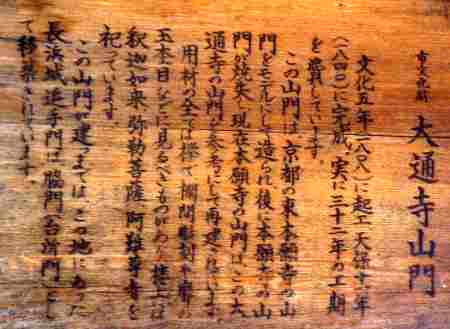 市文化財 大通寺山門
文化五年(一八〇八)に起工、天保十一年
(一八四〇)に完成、実に三十二年の工期
を費しています。
この山門は、京都の東本願寺の山
門をモデルにして造られ、後に本願寺の山
門が焼失し、現在本願寺の山門は、この大
通寺の山門を参考にして再建されています。
用材の全ては欅で、欄間彫刻や扉の
玉杢目などに見るべきものがあり、楼上には
釈迦如来、弥勒菩薩、阿難尊者を
祀っています。
この山門が建つまでは、この地にあった
長浜城追手門は、脇門(台所門)とし
て移築されています。